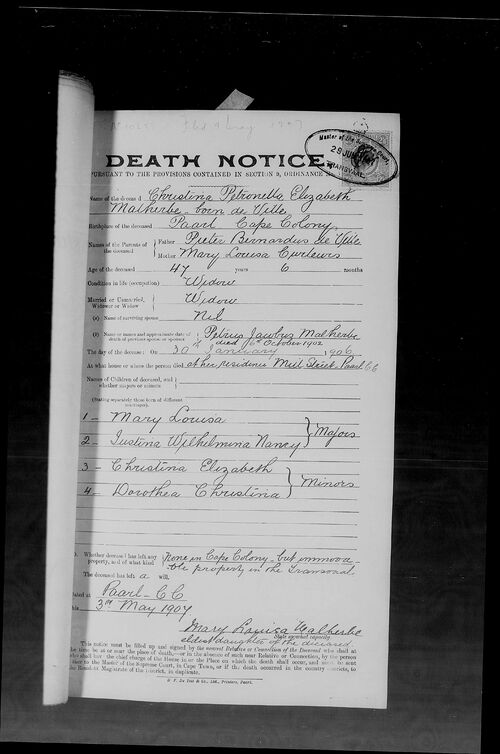 DEATH NOTICE
PURSUANT TO THE PROVISIONS CONTAINED IN SECTION 9, ORDINANCE
Master of the Supreme Court,
28 JUN 1907
TRANSVAAL
Name of the deceased Christina Petronella Elizabeth
Malherbe born de Ville
Birthplace of the deceased Paarl Cape Colony
Names of the Parents of the deceased Father Pieter Bernardus de Ville
Mother Mary Louisa Curlewis
Age of the deceased 47 years 6 months
Condition in life (occupation) Widow
Married or Unmarried, Widower or Widow Widow
(a) Name of surviving spouse Nil
(b) Name or names and approximate date of death of previous spouse or spouses Petrus Jacobus Malherbe
died 6th October 1902
The day of the decease: On 30th January 1906
At what house or where the person died at her residence Mill Street, Paarl C C
Names of Children of deceased, and whether majors or minors
(Stating separately those born of different marriages).
1 - Mary Louisa
2 - Justina Wilhelmina Nancy } Majors
3 - Christina Elizabeth
4 - Dorothea Christina } Minors
Whether deceased has left any property, and of what kind None in Cape Colony - but immova-
ble property in the Transvaal.
The deceased has left a will.
Dated at Paarl - C C
this 3rd May 1907
Mary Louisa Malherbe
eldest daughter of the deceased
State capacity.
This notice must be filled up and signed by the nearest Relative or Connection of the Deceased who shall at
the time be at or near the place of death,—or in the absence of such near Relative or Connection, by the person
who shall have the chief charge of the House in or the Place on which the death shall occur, and must be sent
either to the Master of the Supreme Court, in Cape Town, or if the death occurred in the country districts, to
the Resident Magistrate of the District, in duplicate.
D. F. Du Toit & Co., Ltd., Printers, Paarl.